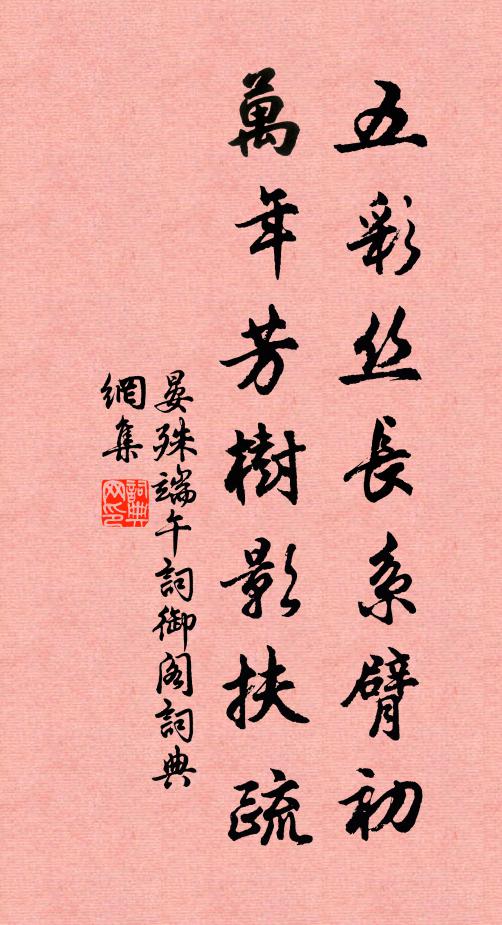 五彩丝長系臂初
萬年芳樹影扶疏
晏殊端午詞御阁詞典
網集
詞典
网印